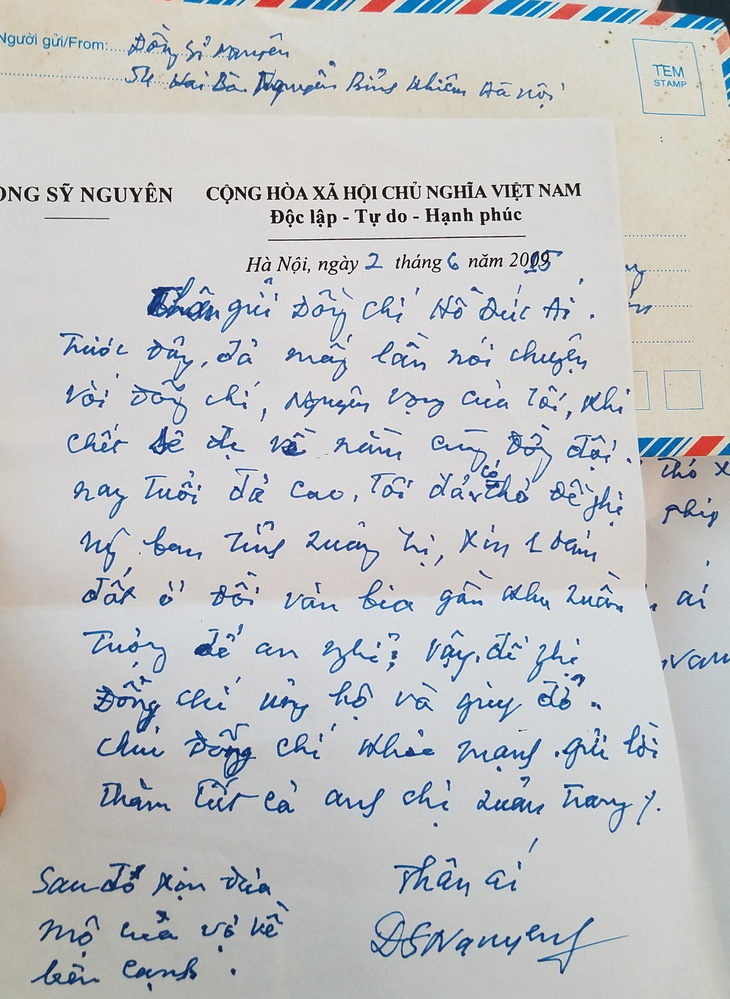 Người gửi/From: Đồng Sĩ Nguyên
54 Hai Bà Nguyễn Bỉnh Khiêm Hà Nội
TEM
STAMP
ONG SỸ NGUYÊN
CỘNG HÒA XÃ HỘI CHỦ NGHĨA VIỆT NAM
Độc lập - Tự do - Hạnh phúc
Hà Nội, ngày 2 tháng 6 năm 20
Thân gửi Đồng chí Hồ Đức Ái.
Trước đây, đã mấy lần nói chuyện
với đồng chí, nguyện vọng của tôi, khi
chết sẽ về nằm cùng đồng đội.
nay tuổi đã cao, tôi đã có thơ đề nghị
Uỷ ban tỉnh Quảng Trị, xin 1 đám
đất ở đồi văn bia gần khu Quần
Tượng để an nghỉ; vậy, đề nghị
Đồng chí ủng hộ và giúp đỡ.
chúc Đồng chí khỏe mạnh. gửi lời
thăm tất cả anh chị Quản Trang.
Thân ái
DSNguyen
Sau đó xin đưa
mộ của vợ về
bên cạnh.
thơ x
giúp
ái